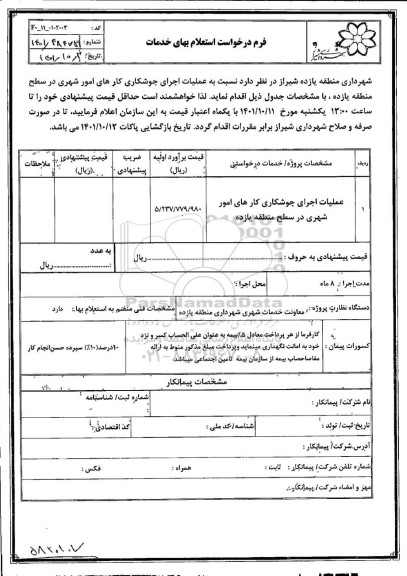 فرم درخواست استعلام بهای خدمات
کد :
شماره:
تاریخ:
شهرداری منطقه یازده شیراز در نظر دارد نسبت به عملیات اجرای جوشکاری کار های امور شهری در سطح
منطقه یازده ، با مشخصات جدول ذیل اقدام نماید. لذا خواهشمند است حداقل قیمت پیشنهادی خود را تا
ساعت ۱۳:۰۰ یکشنبه مورخ ۱۴۰۱/۱۰/۱۱ با یکماه اعتبار قیمت به این سازمان اعلام فرمایید، تا در صورت
صرفه و صلاح شهرداری شیراز برابر مقررات اقدام گردد. تاریخ بازگشایی پاکات ۱۴۰۱/۱۰/۱۲ می باشد.
ردیف مشخصات پروژه/ خدمات درخواستی قیمت برآورد اولیه (ریال) ضریب پیشنهادی قیمت پیشنهادی (ریال) ملاحظات
۱ عملیات اجرای جوشکاری کار های امور شهری در سطح منطقه یازده ۵/۲۳۷/۷۷۹/۹۸۰
قیمت پیشنهادی به حروف : ریال به عدد : ریال
مدت اجرا : ۸ ماه محل اجرا :
دستگاه نظارت پروژه: معاونت خدمات شهری شهرداری منطقه یازده مشخصات فنی منضم به استعلام بها: دارد
کسورات پیمان : کارفرما از هر پرداخت معادل ۵٪ بیمه به عنوان علی الحساب کسر و نزد
خود به امانت نگهداری مینماید وپرداخت مبلغ مذکور منوط به ارائه
مفاصاحساب بیمه از سازمان بیمه تامین اجتماعی میباشد
۱۰درصد(۱۰٪) سپرده حسن انجام کار
ParsNamadData
مشخصات پیمانکار
نام شرکت/ پیمانکار : شماره ثبت/ شناسنامه :
تاریخ ثبت/ تولد : شناسه/کد ملی : کد اقتصادی :
آدرس شرکت/ پیمانکار :
شماره تلفن شرکت/ پیمانکار : ثابت : همراه : فکس :
مهر و امضاء شرکت/ پیمانکار: